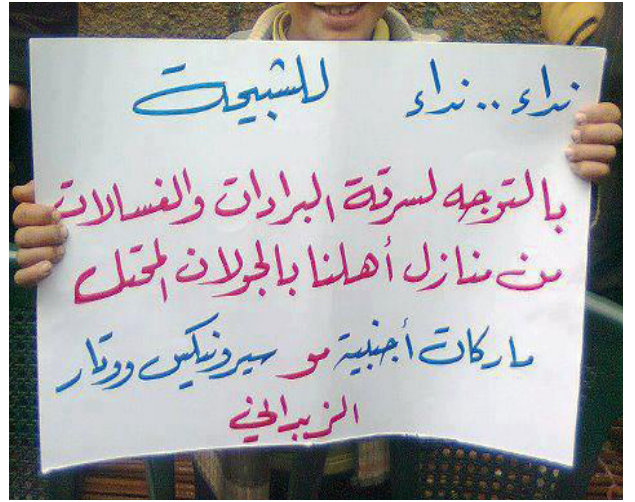 نداء .. نداء للشبيحة
بالتوجه لسرقة البرادات والغسالات
من منازل أهلنا بالجولان المحتل
ماركات أجنبية مو سيرونيكس ووتار
الزبداني